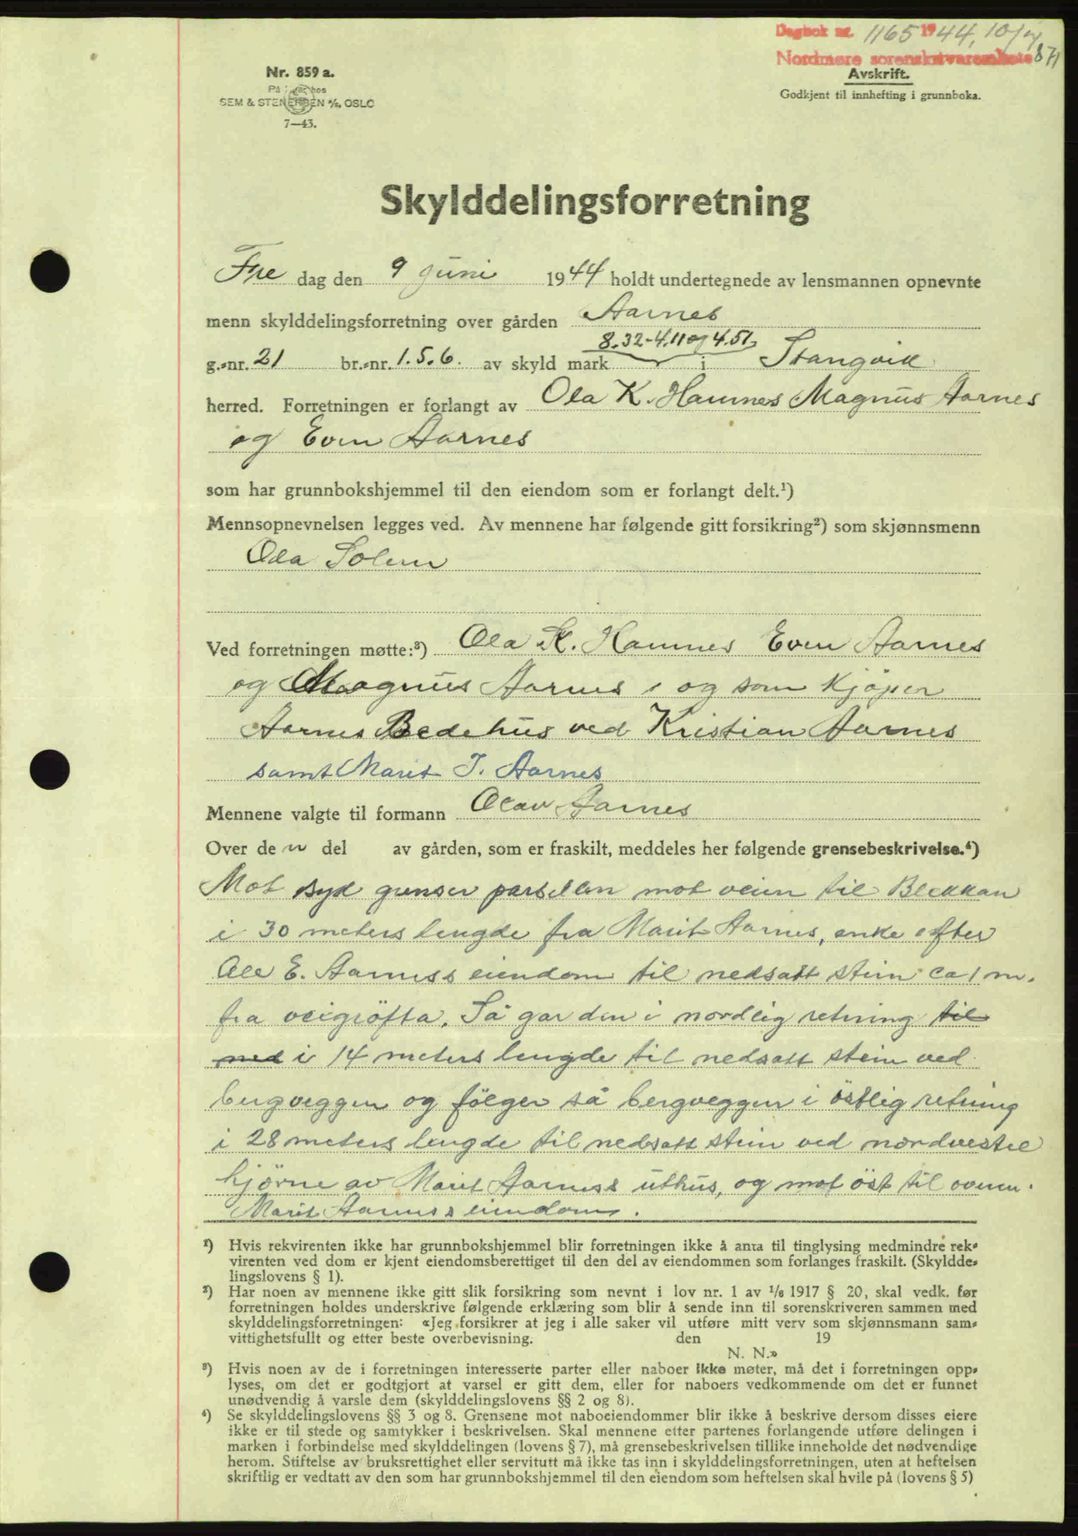 Dagbok nr. 1165 1944, 10/7
Nordmøre sorenskriverembete 871
Nr. 859 a.
På hos
SEM & STENERSEN A/S, OSLO
7—43.
Avskrift.
Godkjent til innhefting i grunnboka.
Skylddelingsforretning
Fre dag den 9 juni 1944 holdt undertegnede av lensmannen opnevnte
menn skylddelingsforretning over gården Aarnes
8.32-4.11 og 4.51
g.-nr. 21 br.-nr. 1.5.6. av skyld mark i Stangvik
herred. Forretningen er forlangt av Ola K. Hamnes Magnus Aarnes
og Even Aarnes
som har grunnbokshjemmel til den eiendom som er forlangt delt.¹)
Mennsopnevnelsen legges ved. Av mennene har følgende gitt forsikring²) som skjønnsmenn
Ola Solem
Ved forretningen møtte:³) Ola K. Hamnes Even Aarnes
og Magnus Aarnes, og som kjöper
Aarnes Bedehus ved Kristian Aarnes
samt Marit J. Aarnes
Mennene valgte til formann Olav Aarnes
Over den del av gården, som er fraskilt, meddeles her følgende grensebeskrivelse.⁴)
Mot syd grenser parsellen mot veien til Blekkan
i 30 meters lengde fra Marit Aarnes, enke efter
Ole E. Aarnes's eiendom til nedsatt stein ca 1 m.
fra veigröfta. Så går den i nordlig retning til
med i 14 meters lengde til nedsatt stein ved
bergveggen og fölger så bergveggen i östlig retning
i 28 meters lengde til nedsatt stein ved nordvestre
hjörne av Marit Aarnes's uthus, og mot öst til ovenn.
Marit Aarnes's eiendom.
¹) Hvis rekvirenten ikke har grunnbokshjemmel blir forretningen ikke å anta til tinglysing medmindre rek-
virenten ved dom er kjent eiendomsberettiget til den del av eiendommen som forlanges fraskilt. (Skyldde-
lingslovens § 1).
²) Har noen av mennene ikke gitt slik forsikring som nevnt i lov nr. 1 av 1/6 1917 § 20, skal vedk. før
forretningen holdes underskrive følgende erklæring som blir å sende inn til sorenskriveren sammen med
skylddelingsforretningen: «Jeg forsikrer at jeg i alle saker vil utføre mitt verv som skjønnsmann sam-
vittighetsfullt og etter beste overbevisning. den 19
N. N.»
³) Hvis noen av de i forretningen interesserte parter eller naboer ikke møter, må det i forretningen opp-
lyses, om det er godtgjort at varsel er gitt dem, eller for naboers vedkommende om det er funnet
unødvendig å varsle dem (skylddelingslovens §§ 2 og 8).
⁴) Se skylddelingslovens §§ 3 og 8. Grensene mot naboeiendommer blir ikke å beskrive dersom disses eiere
ikke er til stede og samtykker i beskrivelsen. Skal mennene etter partenes forlangende utføre delingen i
marken i forbindelse med skylddelingen (lovens § 7), må grensebeskrivelsen tillike inneholde det nødvendige
herom. Stiftelse av bruksrettighet eller servitutt må ikke tas inn i skylddelingsforretningen, uten at heftelsen
skriftlig er vedtatt av den som har grunnbokshjemmel til den eiendom som heftelsen skal hvile på (lovens § 5)